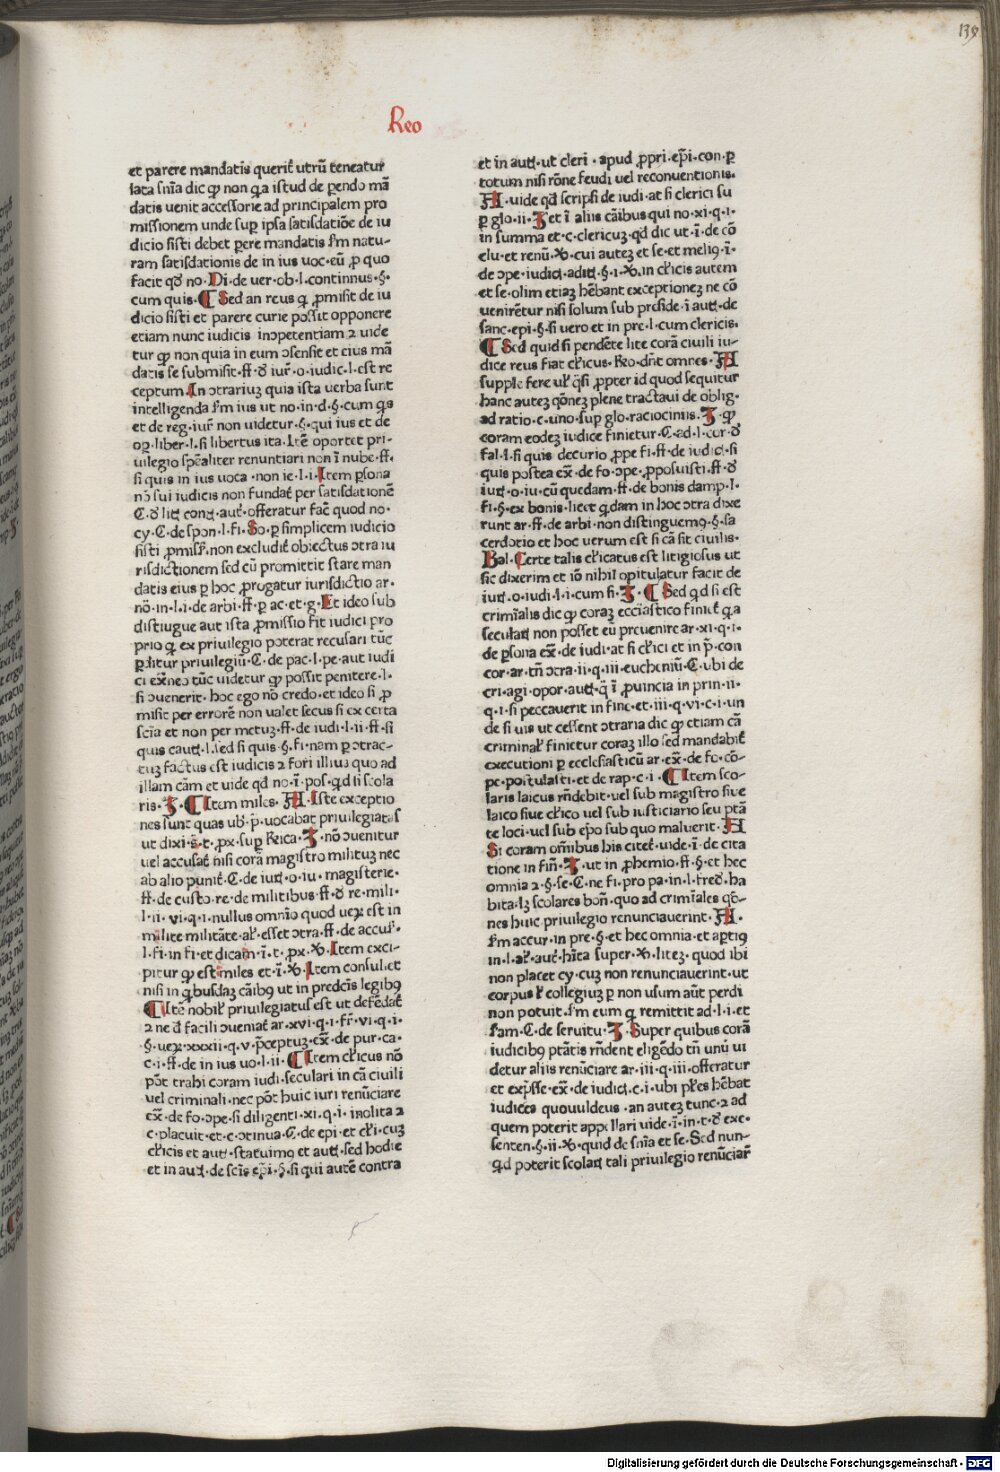 139
Reo
et parere mandatis querit̃ utrũ teneatur
lata sñia dic ꝙ non ꝗa istud de ꝑendo mã
datis venit accessorie ad principalem pro
missionem unde suꝑ ipsa satisdatiõe de iu
dicio sisti debet ꝑere mandatis s̃m natu-
ram satisdationis de in ius uoc·eũ ꝓ quo
facit qđ no·Di·de uer·ob·l·continuus·§·
cum quis·¶ Sed an reus ꝗ ꝓmisit de iu
dicio sisti et parere curie possit opponere
etiam nunc iudicis inꝯpetentiam ⁊ uide
tur ꝙ non quia in eum ꝯsensit et eius mã
datis se submisit·ff·đ iur̃·o·iudic·l·est re
ceptum·In ꝯtrariuꝫ quia ista uerba sunt
intelligenda s̃m ius ut no·in·d·§·cum ꝗs
et de reg·iur̃ non uidetur·§·qui ius et de
oꝑ·liber·l·si libertus ita·Itẽ oportet pri-
uilegio sp̃ealiter renuntiari non ĩ nube·ff·
si quis in ius uoca·non ie·l·i·Item ꝑsona
nõ sui iudicis non fundat̃ per satisdationẽ
C·đ litꝭ conꝗ·aut̃·offeratur fac̃ quod no·
cy·C·de spon·l·fi·So·ꝑ simplicem iudicio
sisti ꝓmiss̃·non excludit̃ obiectus ꝯtra iu
risdictionem sed cũ promittit stare man
datis eius ꝑ hoc ꝓrogatur iurisdictio ar·
nõ·in·l·i·de arbi·ff·ꝑ ac·et·g·Et ideo sub
distiugue aut ista ꝓmissio fit iudici pro
prio ꝗ ex priuilegio poterat recusari tũc
ꝑditur priuilegiũ·C·de pac·l·pe·aut iudi
ci ex̃neo tũc uidetur ꝙ possit penitere·l·
si ꝯuenerit·hoc ego nõ credo·et ideo si ꝓ
misit per errorẽ non ualet secus si ex certa
sc̃ia et non per metuꝫ·ff·de iudi·l·ii·ff·si
quis cautꝭ·l·sed si quis·§·fi·nam ꝑ ꝯtrac-
tuꝫ factus est iudicis ⁊ fori illius quo ad
illam cãm et uide qđ no·ĩ·pos·ꝗd si scola
ris·J·¶ Item miles·A·Iste exceptio
nes sunt quas ub̃·p̃·uocabat priuilegiatas
ut dixi·s̃·t·ꝓx·suꝑ Reica·J·nõ ꝯuenitur
uel accusat̃ nisi corã magistro militũꝫ nec
ab alio punit̃·C·de iudꝭ·o·iu·magisterie·
ff·de custo·re·de militibus·ff·đ re·mili·
l·ii·vi·q·i·nullus omnĩo quod ueꝝ est in
milite militãte·al̃·esset ꝯtra·ff·de accus̃·
l·fi·in fi·et dicam·ĩ·t·ꝓx·ꝟ·Item exci-
pitur ꝙ est miles et·ĩ·ꝟ·Item consul·et
nisi in ꝗbusdaꝫ cãibꝰ ut in predc̃is legibꝰ
¶ Itẽ nobil̃ priuilegiatus est ut defẽdat̃
⁊ ne đ facili ꝯueniat̃ ar·xvi·q·i·fr̃·vi·q·i·
§·ueꝝ·xxxii·q·v·p̃ceptuꝫ·ex̃·de pur·ca·
c·i·ff·de in ius uo·l·ii·¶ Item cl̃icus nõ
põt trahi coram iudi·seculari in cã ciuili
uel criminali·nec põt huic iuri renũciare
ex̃·de fo·ꝯpe·si diligenti·xi·q·i·inolita ⁊
c·placuit·et·c·ꝯtinua·C·de epi·et cl̃i·cuꝫ
cl̃icis et autꝭ·statuimꝰ et autꝭ·sed hodie
et in autꝭ·de sc̃is ep̃i·§·si qui autẽ contra
et in autꝭ·ut cleri·apud ꝓpri·ep̃i·con·ꝑ
totum nisi rõne feudi uel reconuentionis·
A·uide qđ scripsi de iudi·at si clerici su
ꝑ glo·ii·J·et ĩ aliis cãibus qui no·xi·q·i·
in summa et·c·clericuꝫ·qđ dic ut·ĩ·de cõ
elu·et renũ·ꝟ·cui auteꝫ et se·et meliꝰ·ĩ·
de ꝯpe·iudicꝭ·aditꝭ·§·i·ꝟ·in cl̃icis autem
et se·olim etiaꝫ hẽbant exceptioneꝫ ne cõ
uenirẽtur nisi solum sub p̃side·ĩ autꝭ·de
sanc·epi·§·si uero et in pre·l·cum clericis·
¶ Sed quid si pendẽte lite corã ciuili iu-
dice reus fiat cl̃icus·Reo·dñt omnes·A
supple fere ul̃ ꝗ̃si ꝓpter id quod sequitur
hanc auteꝫ qõneꝫ plene tractaui de oblig·
ad ratio·c·uno·suꝑ glo·raciociniis·J·ꝙ
coram eodeꝫ iudice finietur·C·ad·l·cor·đ
fal·l·si quis decurio ꝓpe fi·ff·de iudicꝭ·si
quis postea ex̃·de fo·ꝯpe·ꝓposuisti·ff·đ
iudꝭ·o·iu·cũ quedam·ff·de bonis damp·l·
fi·§·ex bonis·licet ꝗdam in hoc ꝯtra dixe
runt ar·ff·de arbi·non distinguemꝰ·§·sa
cerdotio et hoc uerum est si cã sit ciuilis·
Bal·Certe talis cl̃icatus est litigiosus ut
sic dixerim et iõ nihil opitulatur facit de
iudꝭ·o·iudi·l·i·cum fi·J·¶ Sed ꝗd si est
crimĩalis dic ꝙ coraꝫ ecclĩastico finiet̃ ꝗa
secularꝭ non posset eũ p̃uenire ar·xi·q·i·
de ꝑsona ex̃·de iudi·at si cl̃ici et in p̃·con
cor·ar·tñ ꝯtra·ii·q·iii·eucheniũ·C·ubi de
cri·agi·opor·autꝭ·ꝗ̃ ĩ ꝓuincia in prin·ii·
q·i·si peccauerit in fine·et·iii·q·vi·c·i·un
de si uis ut cessent ꝯtraria dic ꝙ etiam cã
criminal̃ finietur coraꝫ illo sed mandabit̃
executioni ꝑ ecclesiasticũ ar·ex̃·de fo·cõ-
pe·postulasti·et de rap·c·i·¶ Item sco-
laris laicus rñdebit·uel sub magistro siue
laico siue cl̃ico uel sub iusticiario seu ptã
te loci·uel sub ep̃o sub quo maluerit·A
Si coram om̃ibus his citet̃·uide·ĩ·de cita
tione in fiñ·J·ut in ꝓhemio·ff·§·et hec
omnia ⁊·§·se·C·ne fi·pro pa·in·l·fred̃·ha
bita·lꝫ scolares boñ·quo ad crimĩales qõ-
nes huic priuilegio renunciauerint·A·
s̃m accur·in pre·§·et hec omnia·et aꝑtiꝰ
in·l·al̃·aut̃·hĩta super·ꝟ·liteꝫ·quod ibi
non placet cy·cuꝫ non renunciauerint·ut
corpus l̃ collegiuꝫ ꝑ non usum aũt perdi
non potuit·s̃m eum ꝗ remittit ad·l·i·et
fam·C·de seruitu·J·Super quibus corã
iudicibꝰ ptãtis rñdent eligẽdo tñ unũ ui
detur aliis renũciare ar·iii·q·iii·offeratur
et exp̃sse·ex̃·de iudicꝭ·c·i·ubi pl̃es hẽbat
iudices quouuldeus·an auteꝫ tunc·⁊ ad
quem poterit appellari uide·ĩ·in·t·đ exe·
senten·§·ii·ꝟ·quid de sñia et se·Sed nun-
ꝗd poterit scolarꝭ tali priuilegio renũciar̃
Digitalisierung gefördert durch die Deutsche Forschungsgemeinschaft - DFG